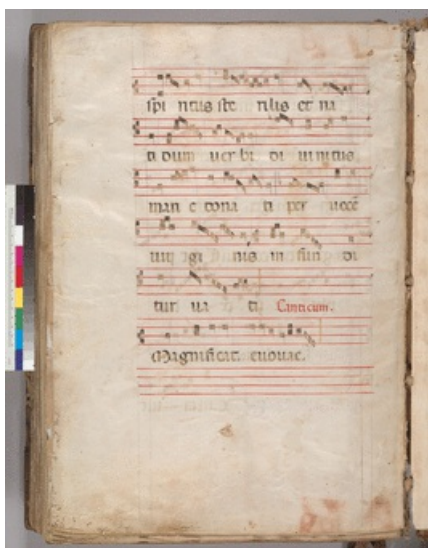 spi ritus ste rilis et na
ti dum uer bi di uinitus
man e dona ti per
uir gi nis in fun di
tur ua ti Canticum.
Magnificat. euouae.